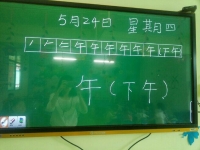 5月24日 星期四
丿 𠂉 𠂉 午 午 午 午 午 午 下午
午(下午)